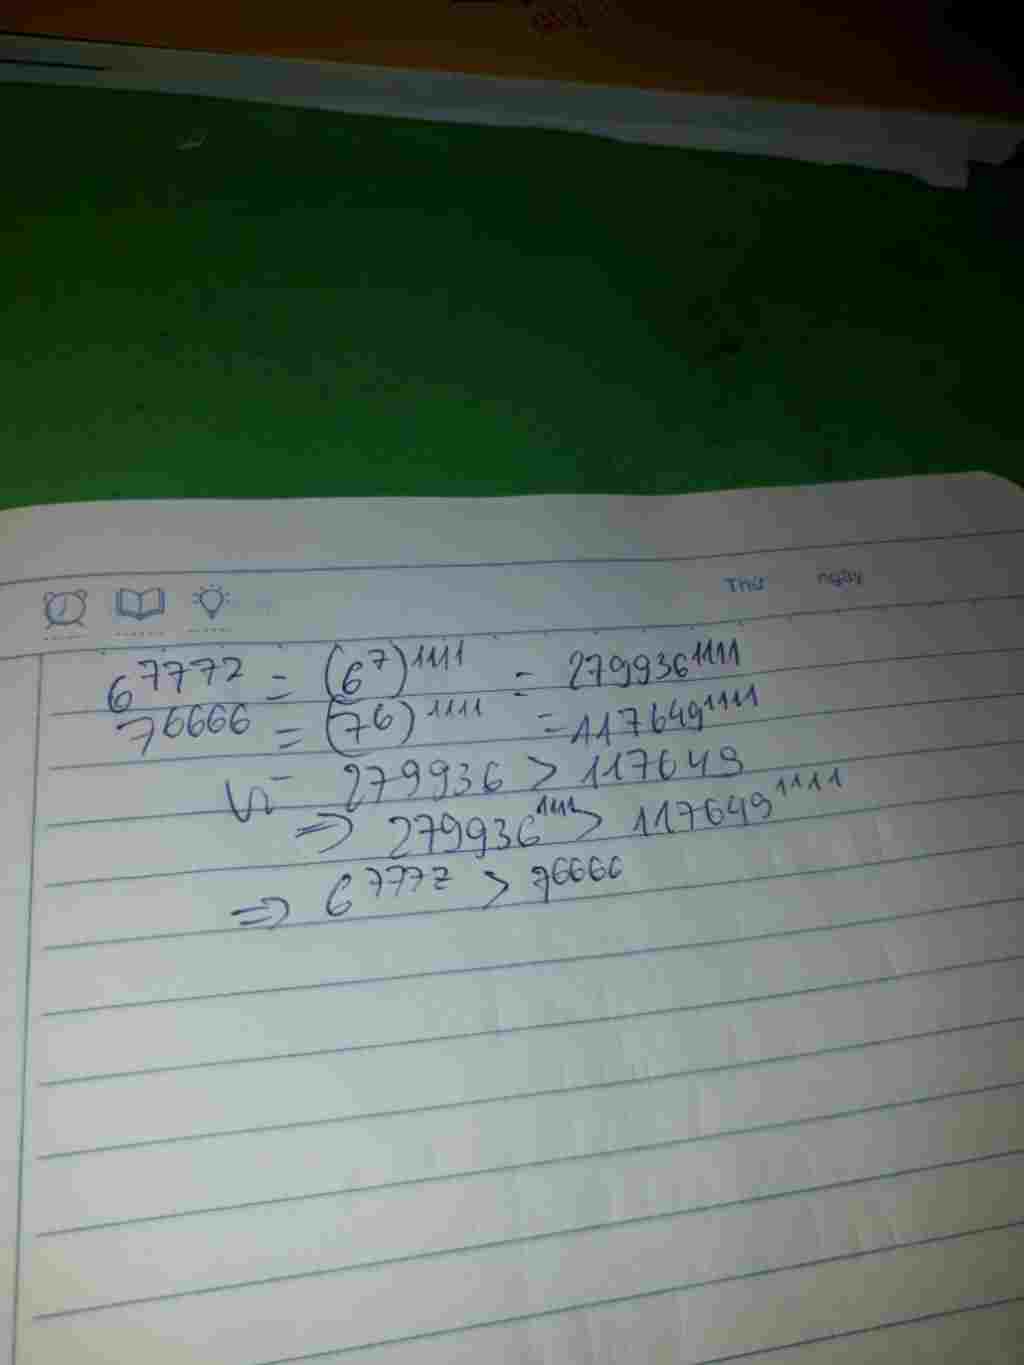 Thứ ngày
6^7772 = (6^7)^1111 = 279936^1111
7^6666 = (7^6)^1111 = 117649^1111
Vì 279936 > 117649
=> 279936^1111 > 117649^1111
=> 6^7772 > 7^6666